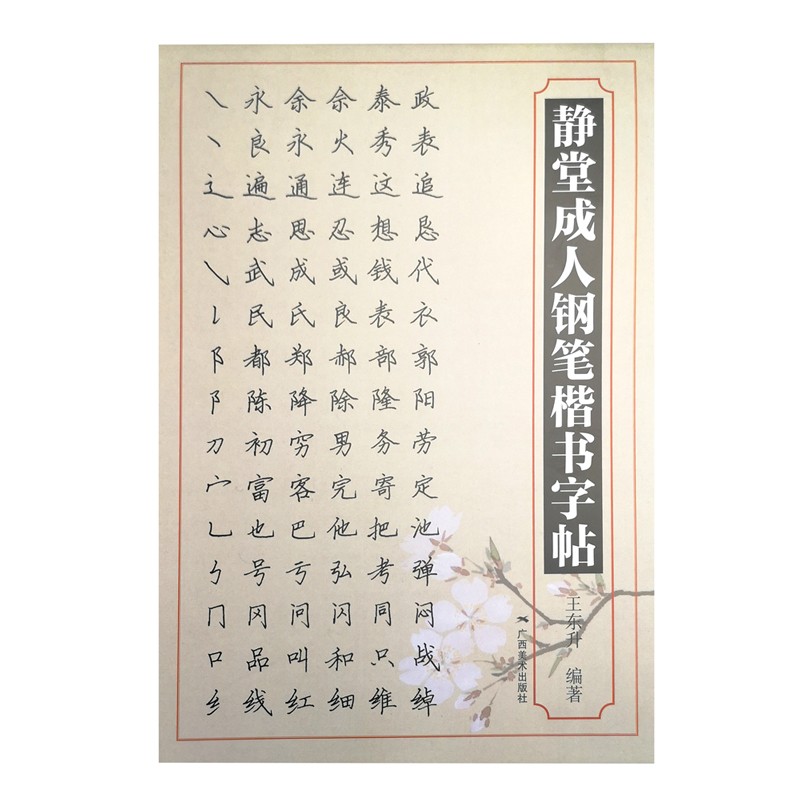 静堂成人钢笔楷书字帖
王东升 编著
广西美术出版社
㇏ 永 余 佘 泰 政
丶 良 永 火 秀 表
辶 遍 通 连 这 追
心 志 思 忍 想 恳
㇂ 武 成 或 钱 代
㇙ 民 氏 良 表 衣
阝 都 郑 郝 部 郭
阝 陈 降 除 隆 阳
刀 初 穷 男 务 劳
宀 富 客 完 寄 定
乚 也 巴 他 把 池
㇉ 号 亏 弘 考 弹
冂 冈 问 闪 同 闷
口 品 叫 和 只 战
纟 线 红 细 维 绰